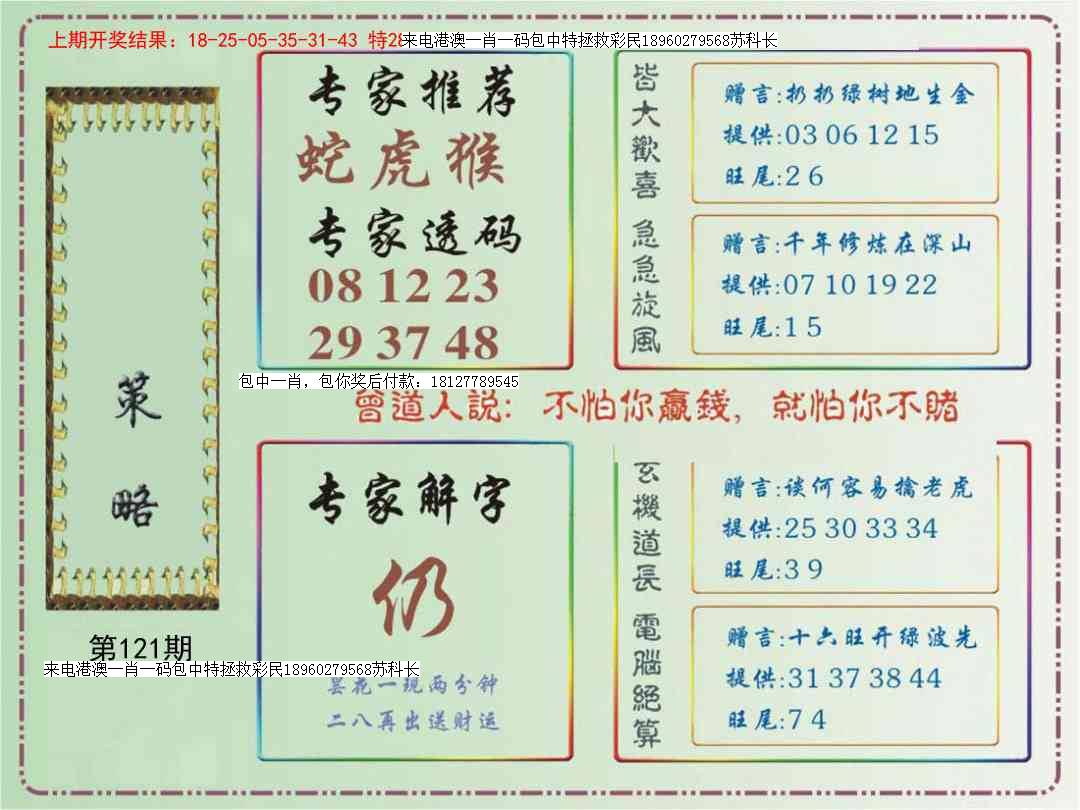 上期开奖结果：18-25-05-35-31-43 特28
来电港澳一肖一码包中特拯救彩民18960279568苏科长
策略
第121期
来电港澳一肖一码包中特拯救彩民18960279568苏科长
专家推荐
蛇虎猴
专家透码
08 12 23
29 37 48
皆大歡喜
赠言:扔扔绿树地生金
提供:03 06 12 15
旺尾:2 6
急急旋風
赠言:千年修炼在深山
提供:07 10 19 22
旺尾:1 5
包中一肖，包你奖后付款：18127789545
曾道人説：不怕你贏錢，就怕你不賭
专家解字
仍
昙花一现两分钟
二八再出送财运
玄機道長
赠言:谈何容易擒老虎
提供:25 30 33 34
旺尾:3 9
電腦絕算
赠言:十六旺开绿波先
提供:31 37 38 44
旺尾:7 4